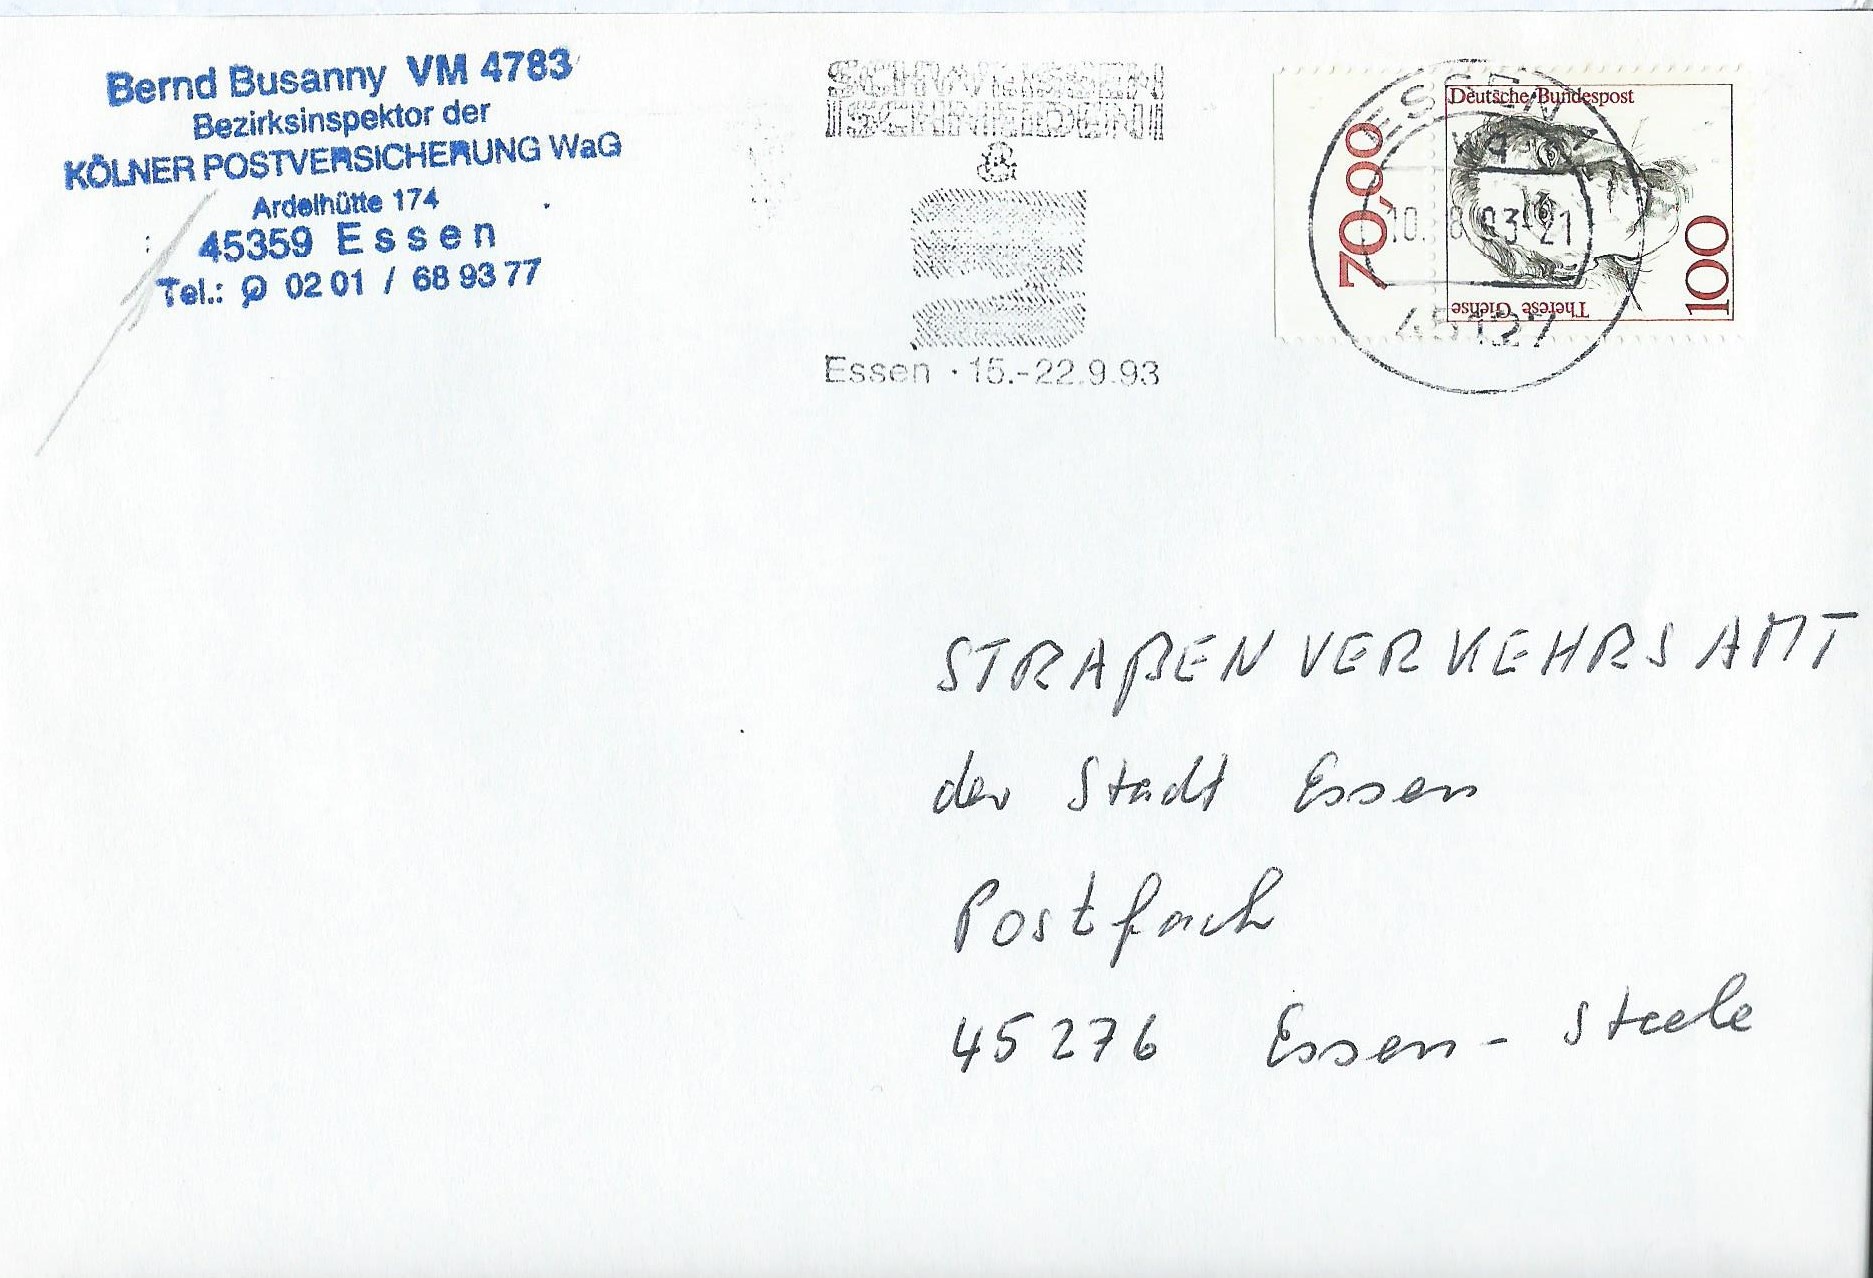 Bernd Busanny VM 4783
Bezirksinspektor der
KÖLNER POSTVERSICHERUNG WaG
Ardelhütte 174
45359 Essen
Tel.: 02 01 / 68 93 77
Essen · 15.-22.9.93
70,00
Deutsche Bundespost
Therese Giehse
100
ESSEN
10.8.93-21
45127
STRAßENVERKEHRSAMT
der Stadt Essen
Postfach
45276 Essen-Steele